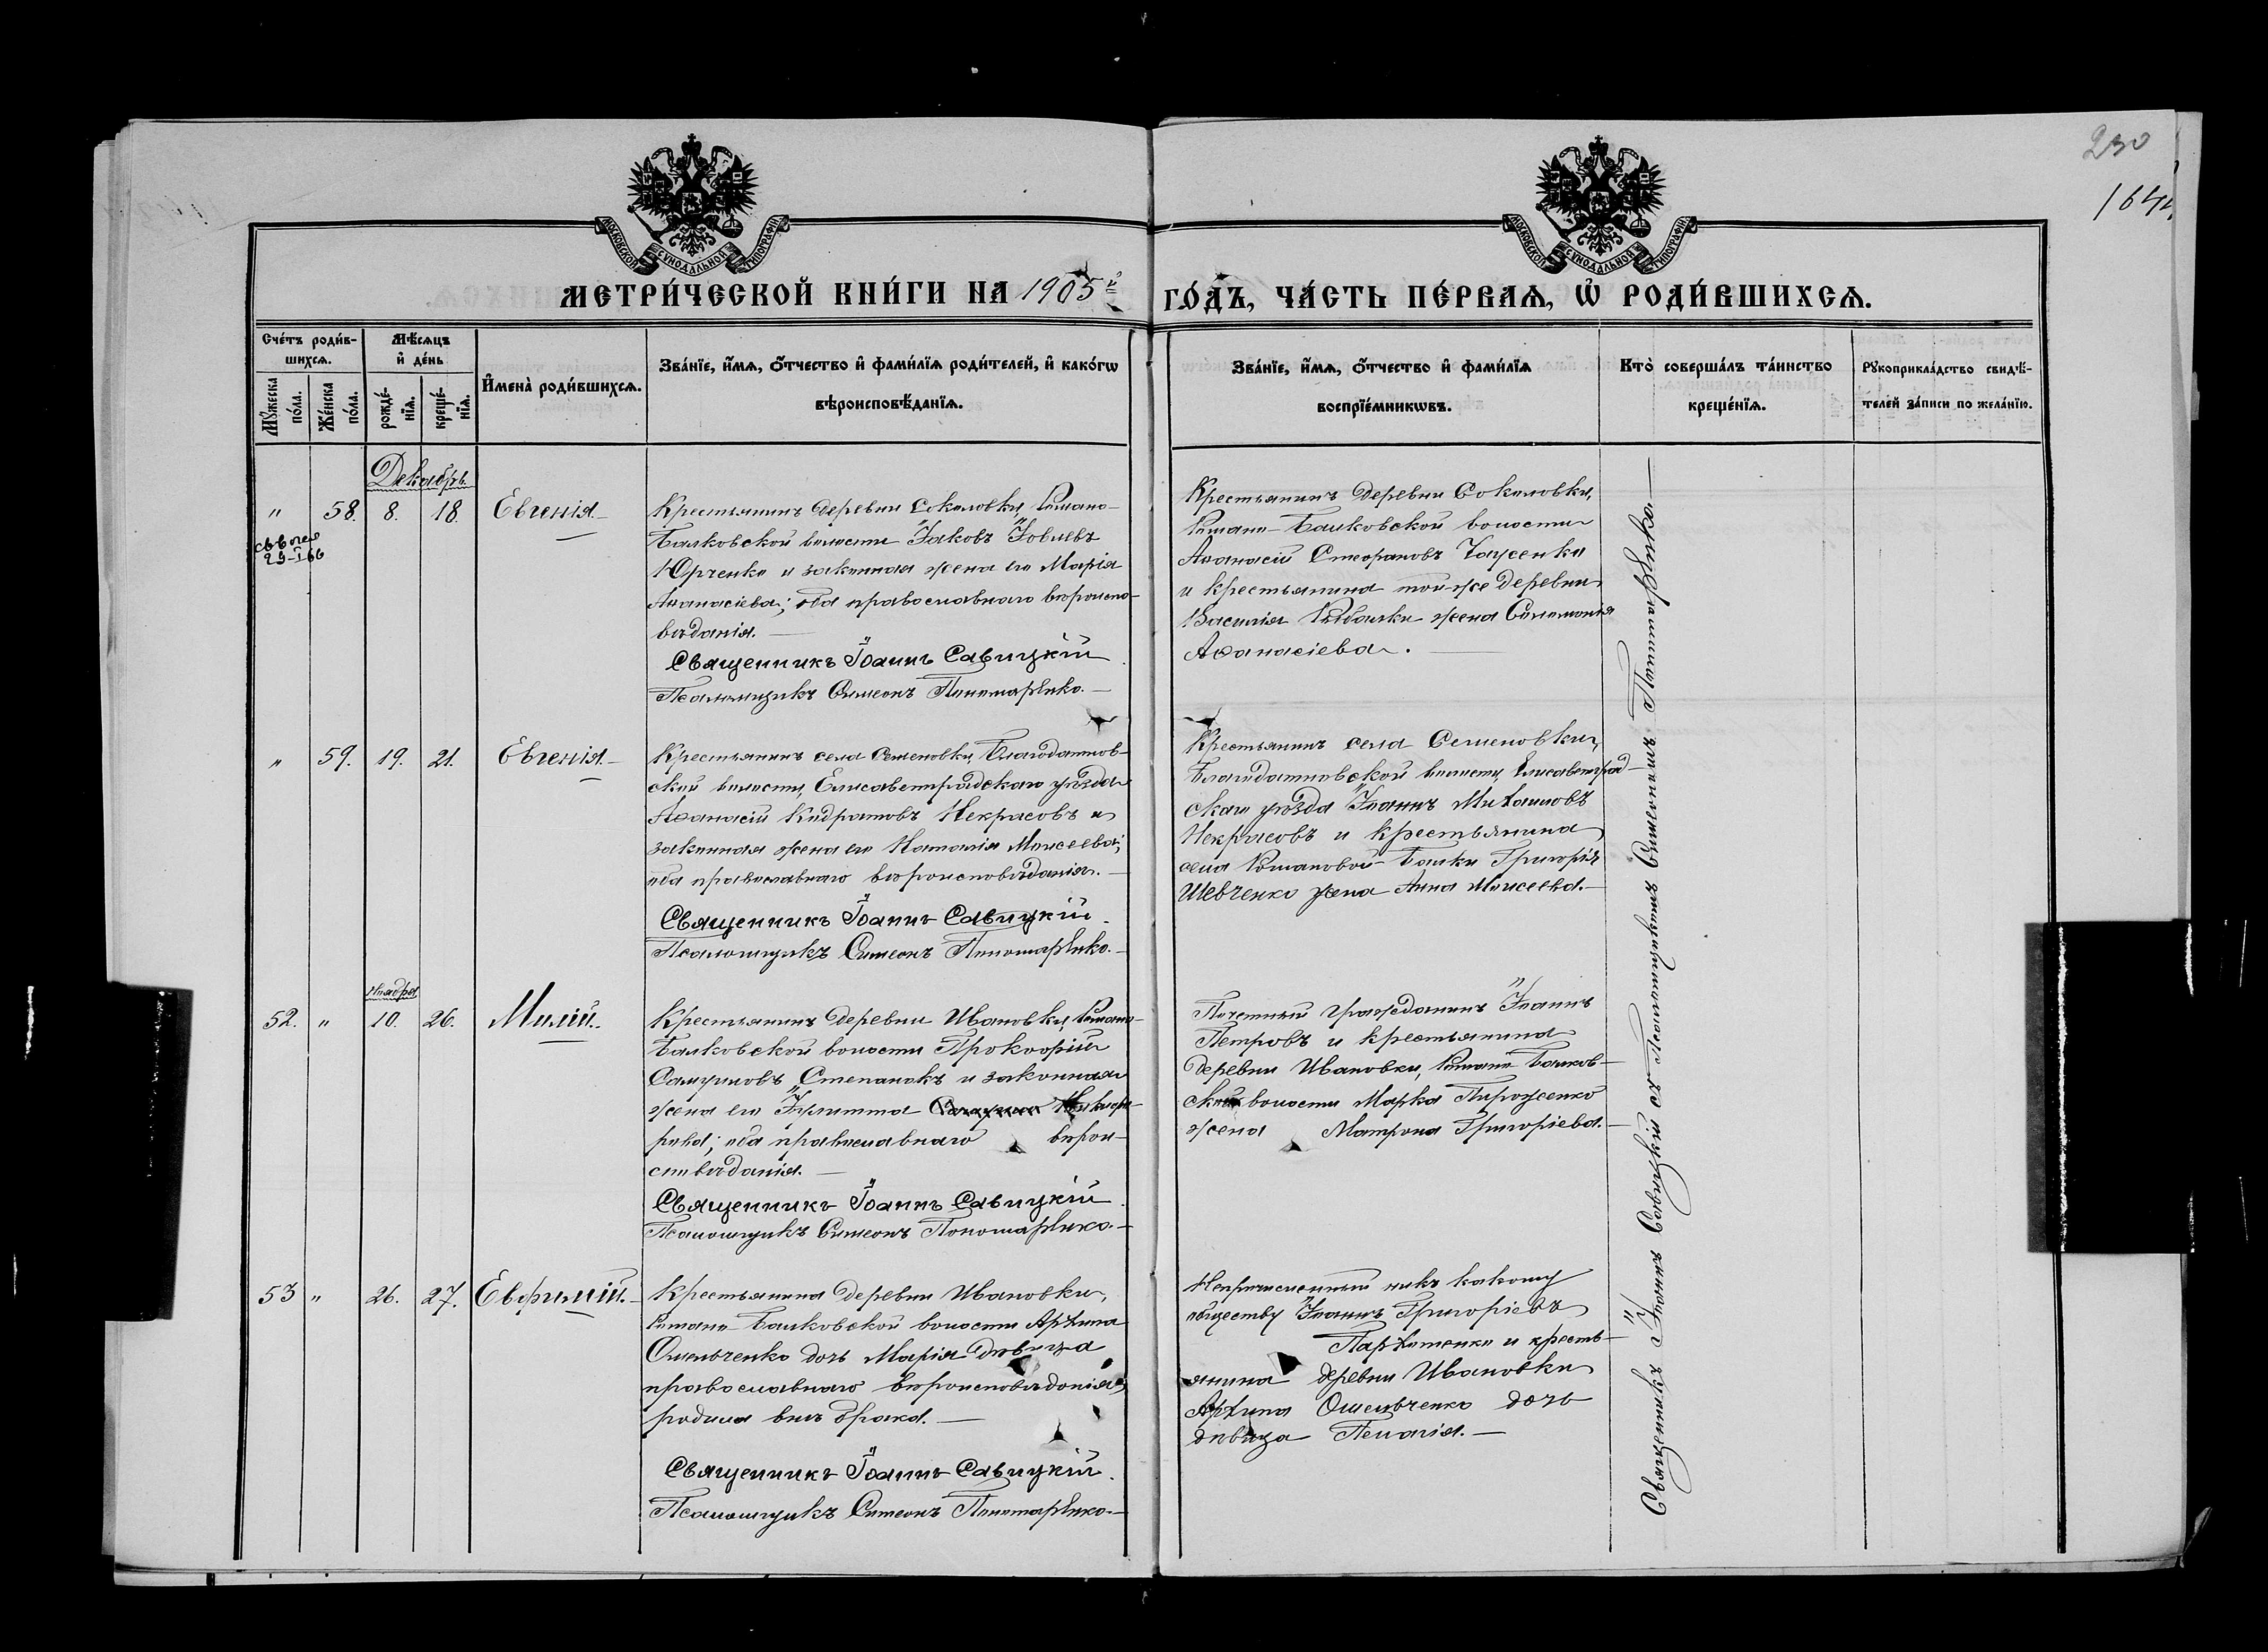 230
1644
МОСКОВСКОЙ СУНОДАЛЬНОЙ ТИПОГРАФІИ
МОСКОВСКОЙ СУНОДАЛЬНОЙ ТИПОГРАФІИ
МЕТРИ́ЧЕСКОЙ КНИ́ГИ НА 1905й ГО́ДЪ, ЧА́СТЬ ПЕ́РВАѦ, Ѡ҆ РОДИ́ВШИХСѦ.
Сче́тъ роди́в-
шихсѧ.
Мѣ́сѧцъ
и҆ де́нь
Мꙋ́жеска по́ла.
Же́нска по́ла.
рожде́-
нїѧ.
креще́-
нїѧ.
И҆мена̀ роди́вшихсѧ.
Зва́нїе, и҆́мѧ, ѻ҆́тчество и҆ фами́лїѧ роди́телей, и҆ како́гѡ
вѣроисповѣ́данїѧ.
Зва́нїе, и҆́мѧ, ѻ҆́тчество и҆ фами́лїѧ
воспрїе́мникѡвъ.
Кто̀ соверша́лъ та́инство
креще́нїѧ.
Рꙋкоприкла́дство свидѣ́-
телей за́писи по жела́нїю.
Декабрь
" 58. 8. 18. Евгенія
29-I 66
Крестьянинъ деревни Соколовки, Романо-
Балковской волости Іаковъ Іовлевъ
Юрченко и законная жена его Марія
Аѳанасіева; оба православнаго вѣроиспо-
вѣданія. —
Священникъ Іоаннъ Савицкій.
Псаломщикъ Симеонъ Пономаренко. —
Крестьянинъ деревни Соколовки,
Романо-Балковской волости
Аѳанасій Стефановъ Чаусенко
и крестьянина той-же деревни
Василія Рыбалки жена Соломонія
Аѳанасіева. —
" 59. 19. 21. Евгенія. —
Крестьянинъ села Семеновки, Благодатнов-
ской волости, Елисаветградскаго уѣзда
Аѳанасій Кодратовъ Некрасовъ и
законная жена его Наталія Моисеева;
оба православнаго вѣроисповѣданія. —
Священникъ Іоаннъ Савицкій.
Псаломщикъ Симеонъ Пономаренко. —
Крестьянинъ села Семеновки,
Благодатновской волости, Елисаветград-
скаго уѣзда Іоаннъ Михаиловъ
Некрасовъ и крестьянина
села Романовой-Балки Григорія
Шевченко жена Анна Моисеева. —
Ноября
52. " 10. 26. Милій.
Крестьянинъ деревни Ивановки, Романо-
Балковской волости Прокофій
Самуиловъ Степанокъ и законная
жена его Іулитта Никифо-
рова; оба православнаго вѣрои-
сповѣданія. —
Священникъ Іоаннъ Савицкій.
Псаломщикъ Симеонъ Пономаренко. —
Почетный гражданинъ Іоаннъ
Петровъ и крестьянина
деревни Ивановки, Романо-Балков-
ской волости Марка Пироженко
жена Матрона Григоріева. —
53 " 26. 27. Евфимій. —
Крестьянина деревни Ивановки,
Романо-Балковской волости Архипа
Омельченко дочь Марія дѣвица
православнаго вѣроисповѣданія,
родила внѣ брака. —
Священникъ Іоаннъ Савицкій.
Псаломщикъ Симеонъ Пономаренко. —
Непричисленный никъ какому
обществу Іоаннъ Григоріевъ
Пархоменко и кресть-
янина деревни Ивановки
Архипа Омельченко дочь
дѣвица Пелагія. —
Священникъ Іоаннъ Савицкій съ Псаломщикомъ Симеономъ Пономаренко. —